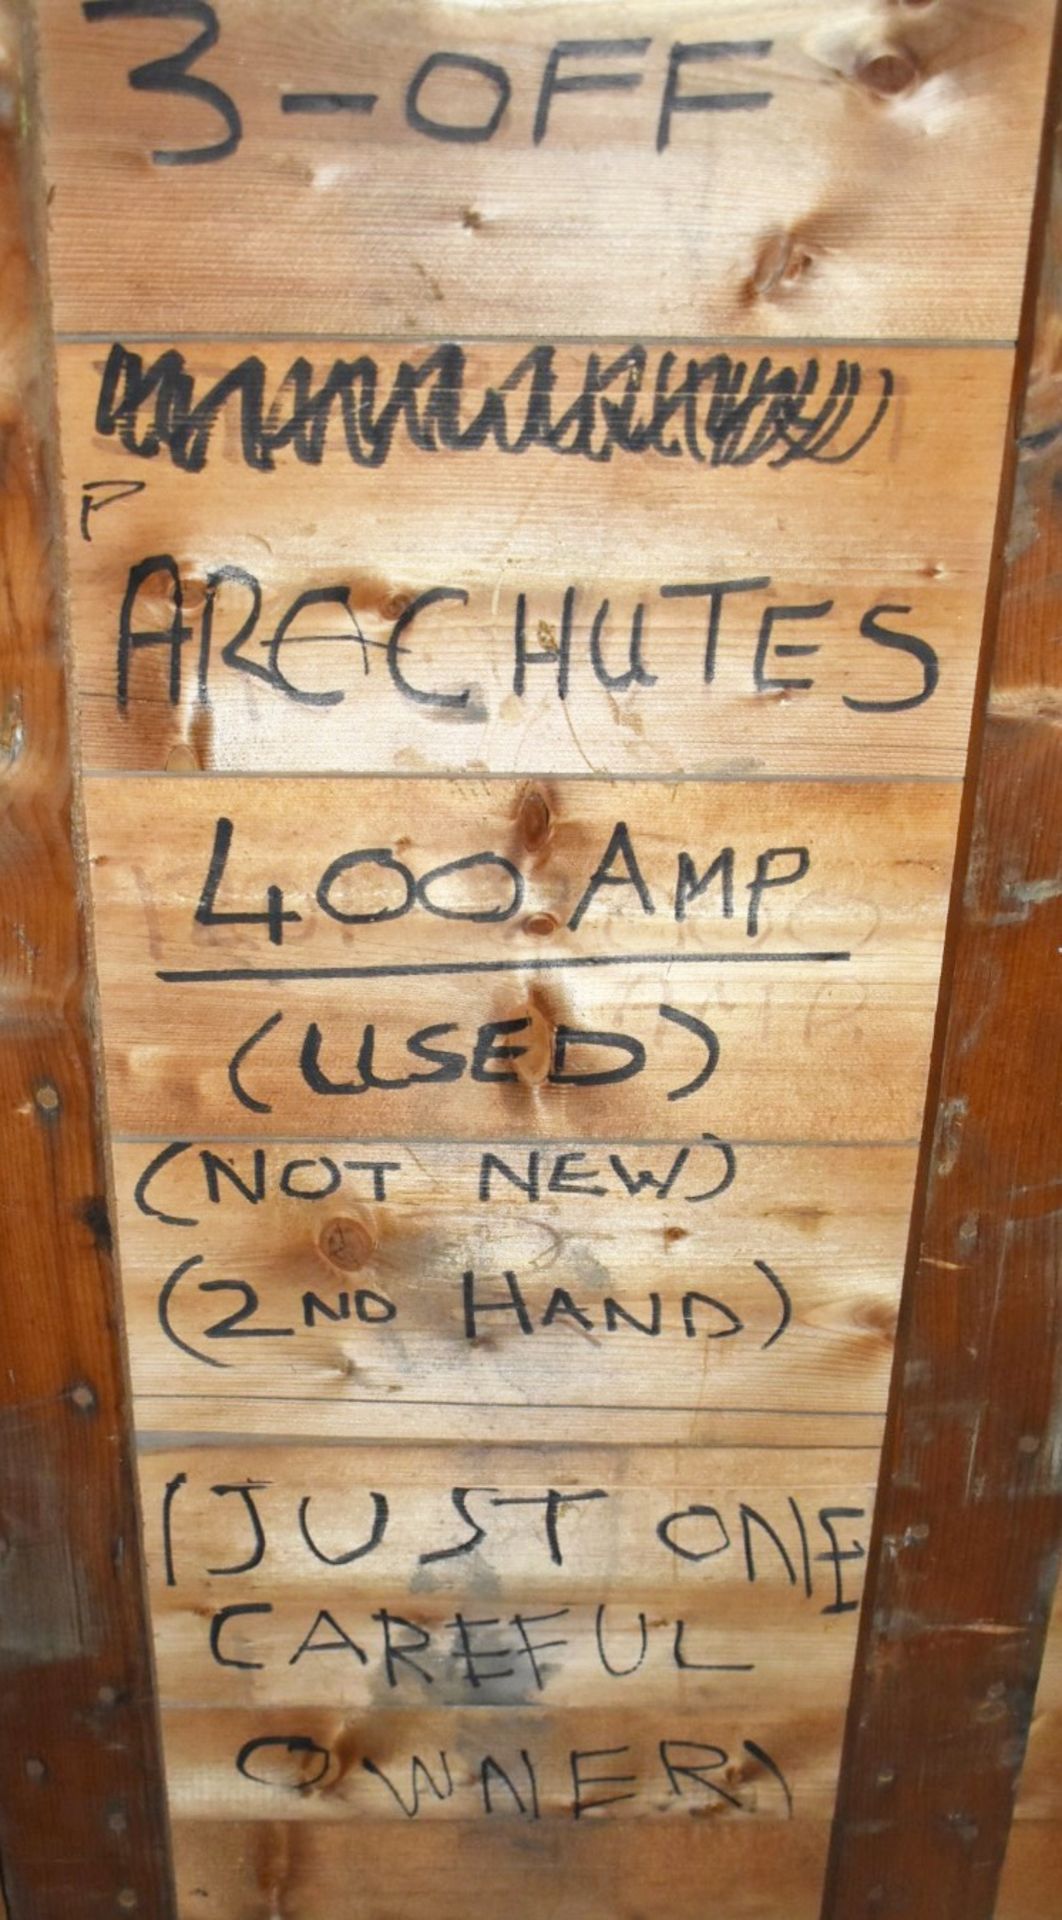 3-OFF
P
ARACHUTES
400 AMP
(USED)
(NOT NEW)
(2ND HAND)
(JUST ONE
CAREFUL
OWNER)